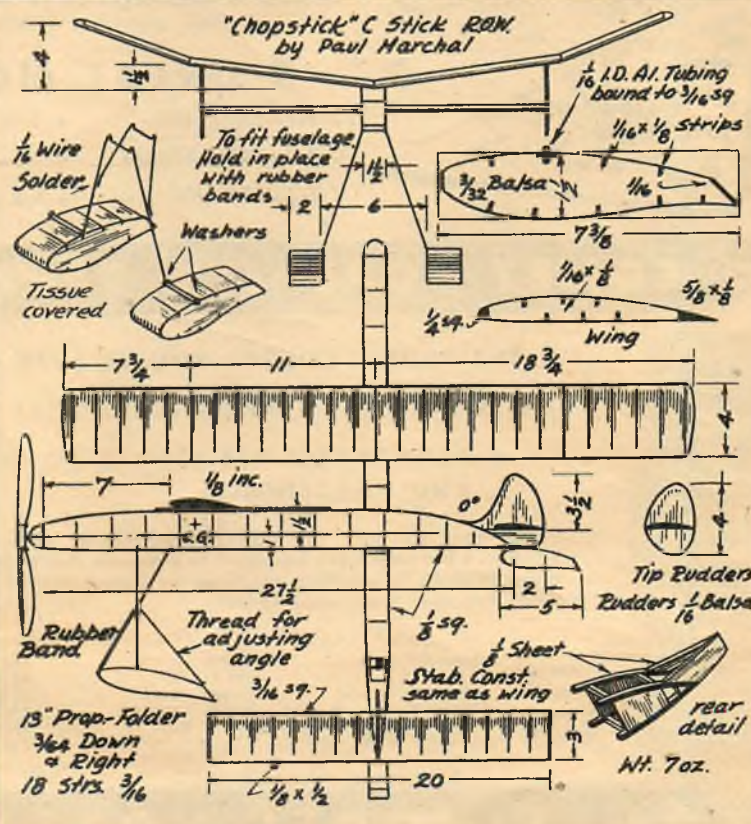 "Chopstick" C Stick R.O.W.
by Paul Marchal
4
1½
1/16 I.D. Al. Tubing
bound to 3/16 sq
1/16 Wire
Solder
To fit fuselage
Hold in place
with rubber
bands
1½
2
6
1/16 x 1/8 strips
3/32 Balsa
1½
1/16
7 3/8
Washers
Tissue
covered
1/16 x 1/8
5/8 x 1/8
1/4 sq.
Wing
7¾
11
18¾
4
7
1/8 inc.
0°
3½
4
+
C.G.
1½
1
27½
2
5
Tip Rudders
Rudders 1/16 Balsa
Rubber
Band
Thread for
adjusting
angle
1/8 sq.
1/8 Sheet
3/16 sq.
Stab. Const.
same as wing
rear
detail
13" Prop.-Folder
3/64 Down
& Right
18 Strs. 3/16
3
20
1/8 x 1/2
Wt. 7 oz.